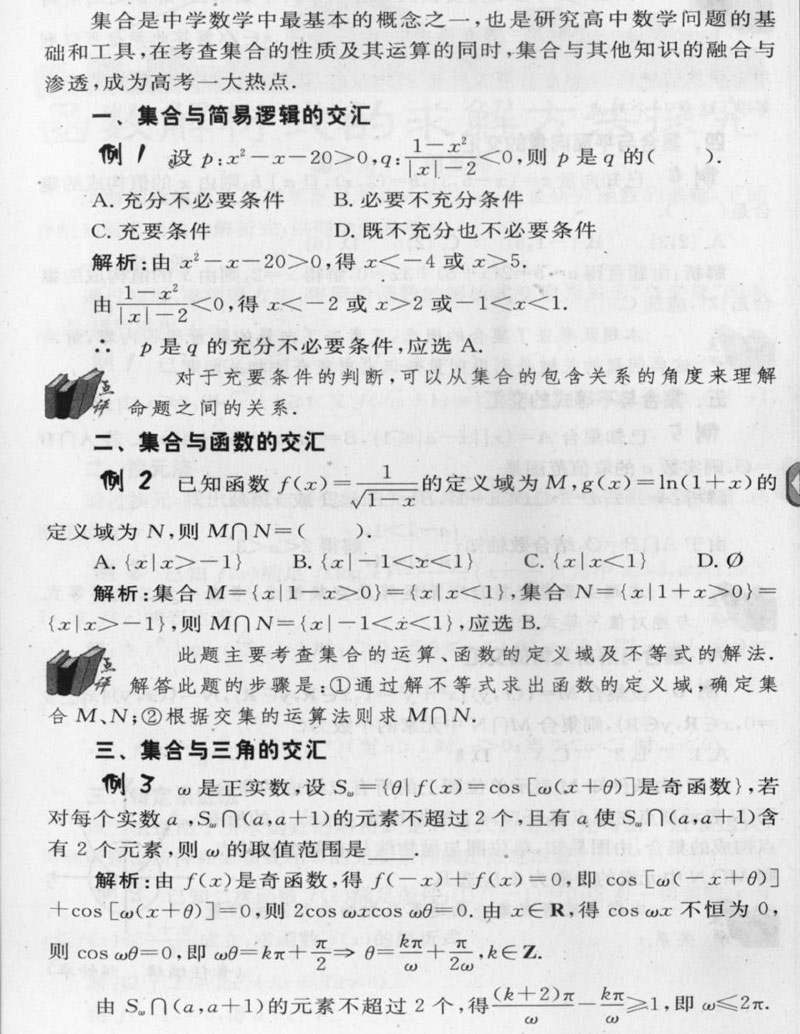 集合是中学数学中最基本的概念之一,也是研究高中数学问题的基
础和工具,在考查集合的性质及其运算的同时,集合与其他知识的融合与
渗透,成为高考一大热点.
一、集合与简易逻辑的交汇
例 1 设 p:x²-x-20>0,q:(1-x²)/(|x|-2)<0,则 p 是 q 的(  ).
A. 充分不必要条件 B. 必要不充分条件
C. 充要条件 D. 既不充分也不必要条件
解析:由 x²-x-20>0,得 x<-4 或 x>5.
由(1-x²)/(|x|-2)<0,得 x<-2 或 x>2 或-1<x<1.
∴ p 是 q 的充分不必要条件,应选 A.
点评 对于充要条件的判断,可以从集合的包含关系的角度来理解
命题之间的关系.
二、集合与函数的交汇
例 2 已知函数 f(x)=1/√(1-x)的定义域为 M,g(x)=ln(1+x)的
定义域为 N,则 M∩N=(  ).
A. {x|x>-1} B. {x|-1<x<1} C. {x|x<1} D. Ø
解析:集合 M={x|1-x>0}={x|x<1},集合 N={x|1+x>0}=
{x|x>-1},则 M∩N={x|-1<x<1},应选 B.
点评 此题主要考查集合的运算、函数的定义域及不等式的解法.
解答此题的步骤是:①通过解不等式求出函数的定义域,确定集
合 M、N;②根据交集的运算法则求 M∩N.
三、集合与三角的交汇
例 3 ω 是正实数,设 S_ω={θ|f(x)=cos[ω(x+θ)]是奇函数},若
对每个实数 a,S_ω∩(a,a+1)的元素不超过 2 个,且有 a 使 S_ω∩(a,a+1)含
有 2 个元素,则 ω 的取值范围是____.
解析:由 f(x)是奇函数,得 f(-x)+f(x)=0,即 cos[ω(-x+θ)]
+cos[ω(x+θ)]=0,则 2cos ωxcos ωθ=0. 由 x∈R,得 cos ωx 不恒为 0,
则 cos ωθ=0,即 ωθ=kπ+π/2⇒ θ=kπ/ω+π/2ω,k∈Z.
由 S_ω∩(a,a+1)的元素不超过 2 个,得(k+2)π/ω-kπ/ω≥1,即 ω≤2π.